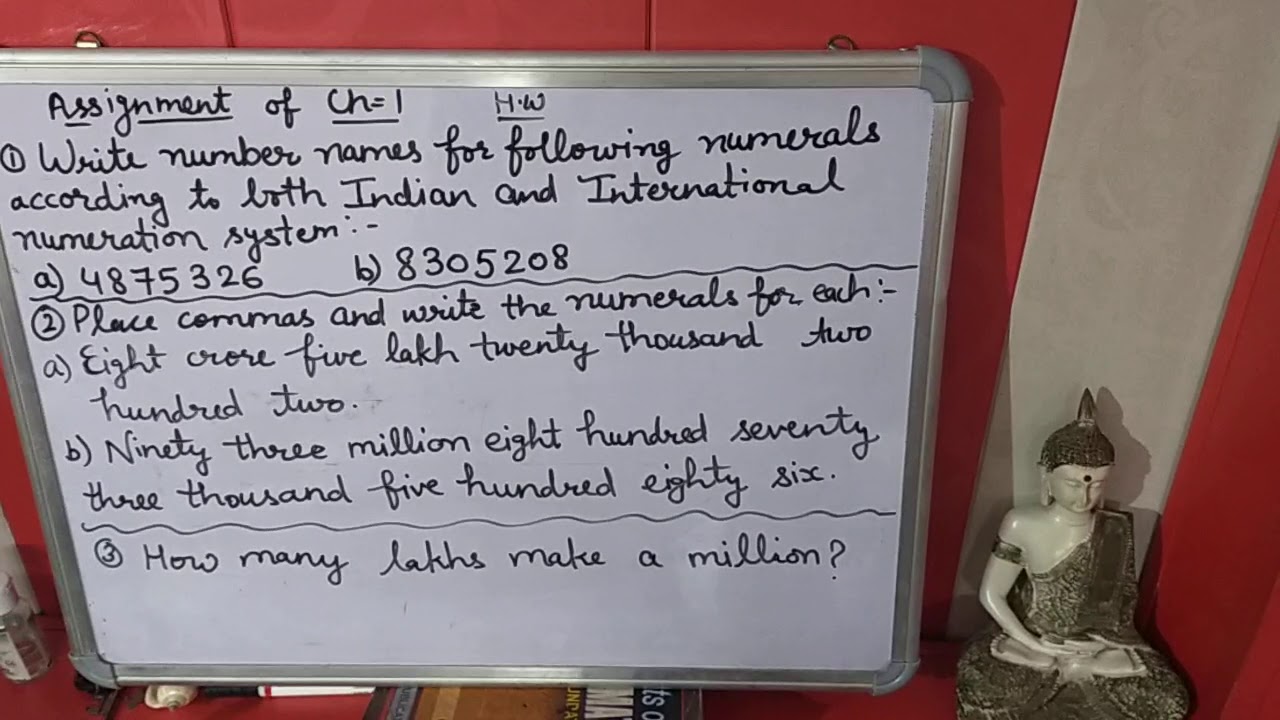 Assignment of Ch=1 H.W
① Write number names for following numerals
according to both Indian and International
numeration system:-
a) 4875326 b) 8305208
② Place commas and write the numerals for each:-
a) Eight crore five lakh twenty thousand two
hundred two.
b) Ninety three million eight hundred seventy
three thousand five hundred eighty six.
③ How many lakhs make a million?